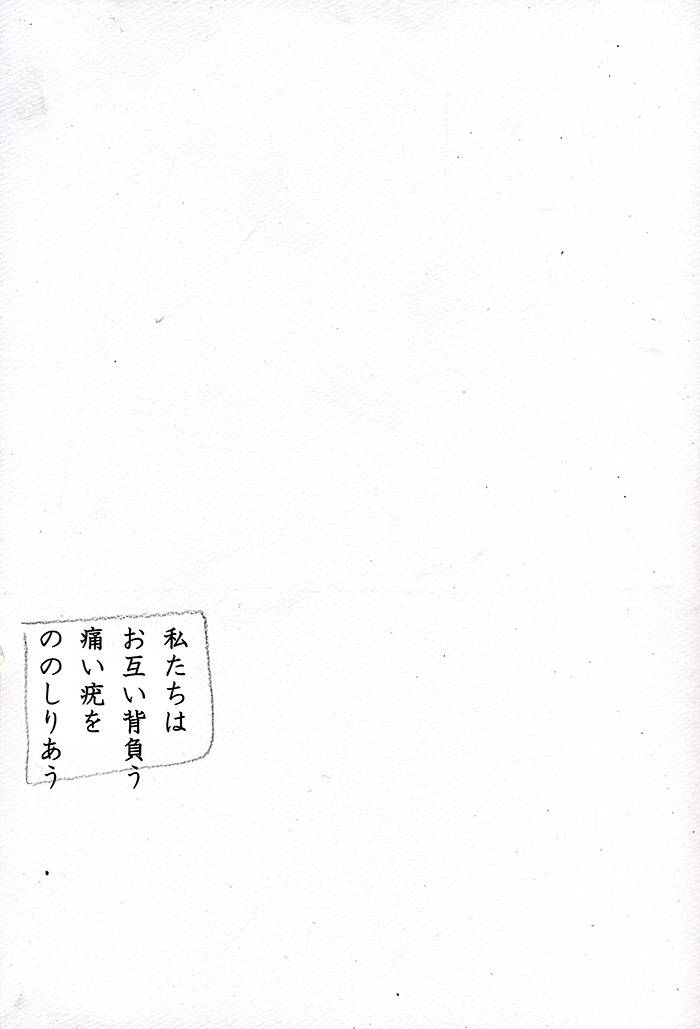 私たちは
お互い背負う
痛い疣を
ののしりあう